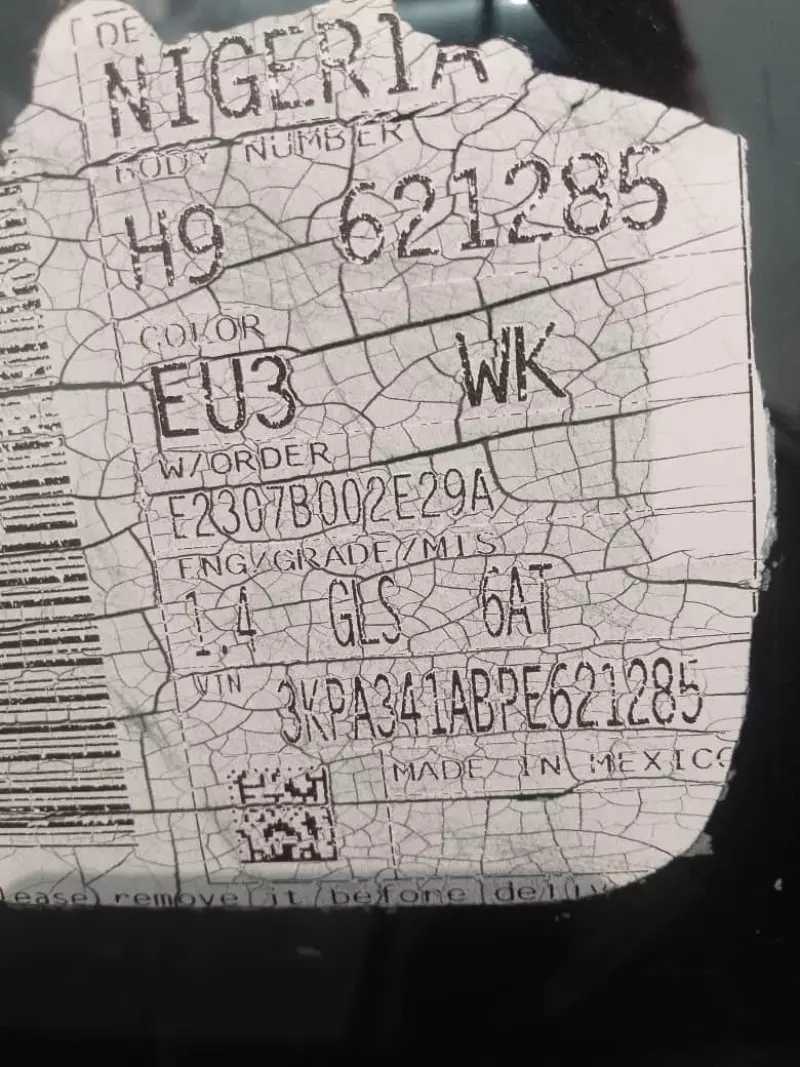 DE
NIGERIA
BODY NUMBER
H9 621285
COLOR
EU3 WK
W/ORDER
E2307B002E29A
ENG/GRADE/MIS
1.4 GLS 6AT
VIN 3KPA341ABPE621285
MADE IN MEXICO
ease remove it before deliv